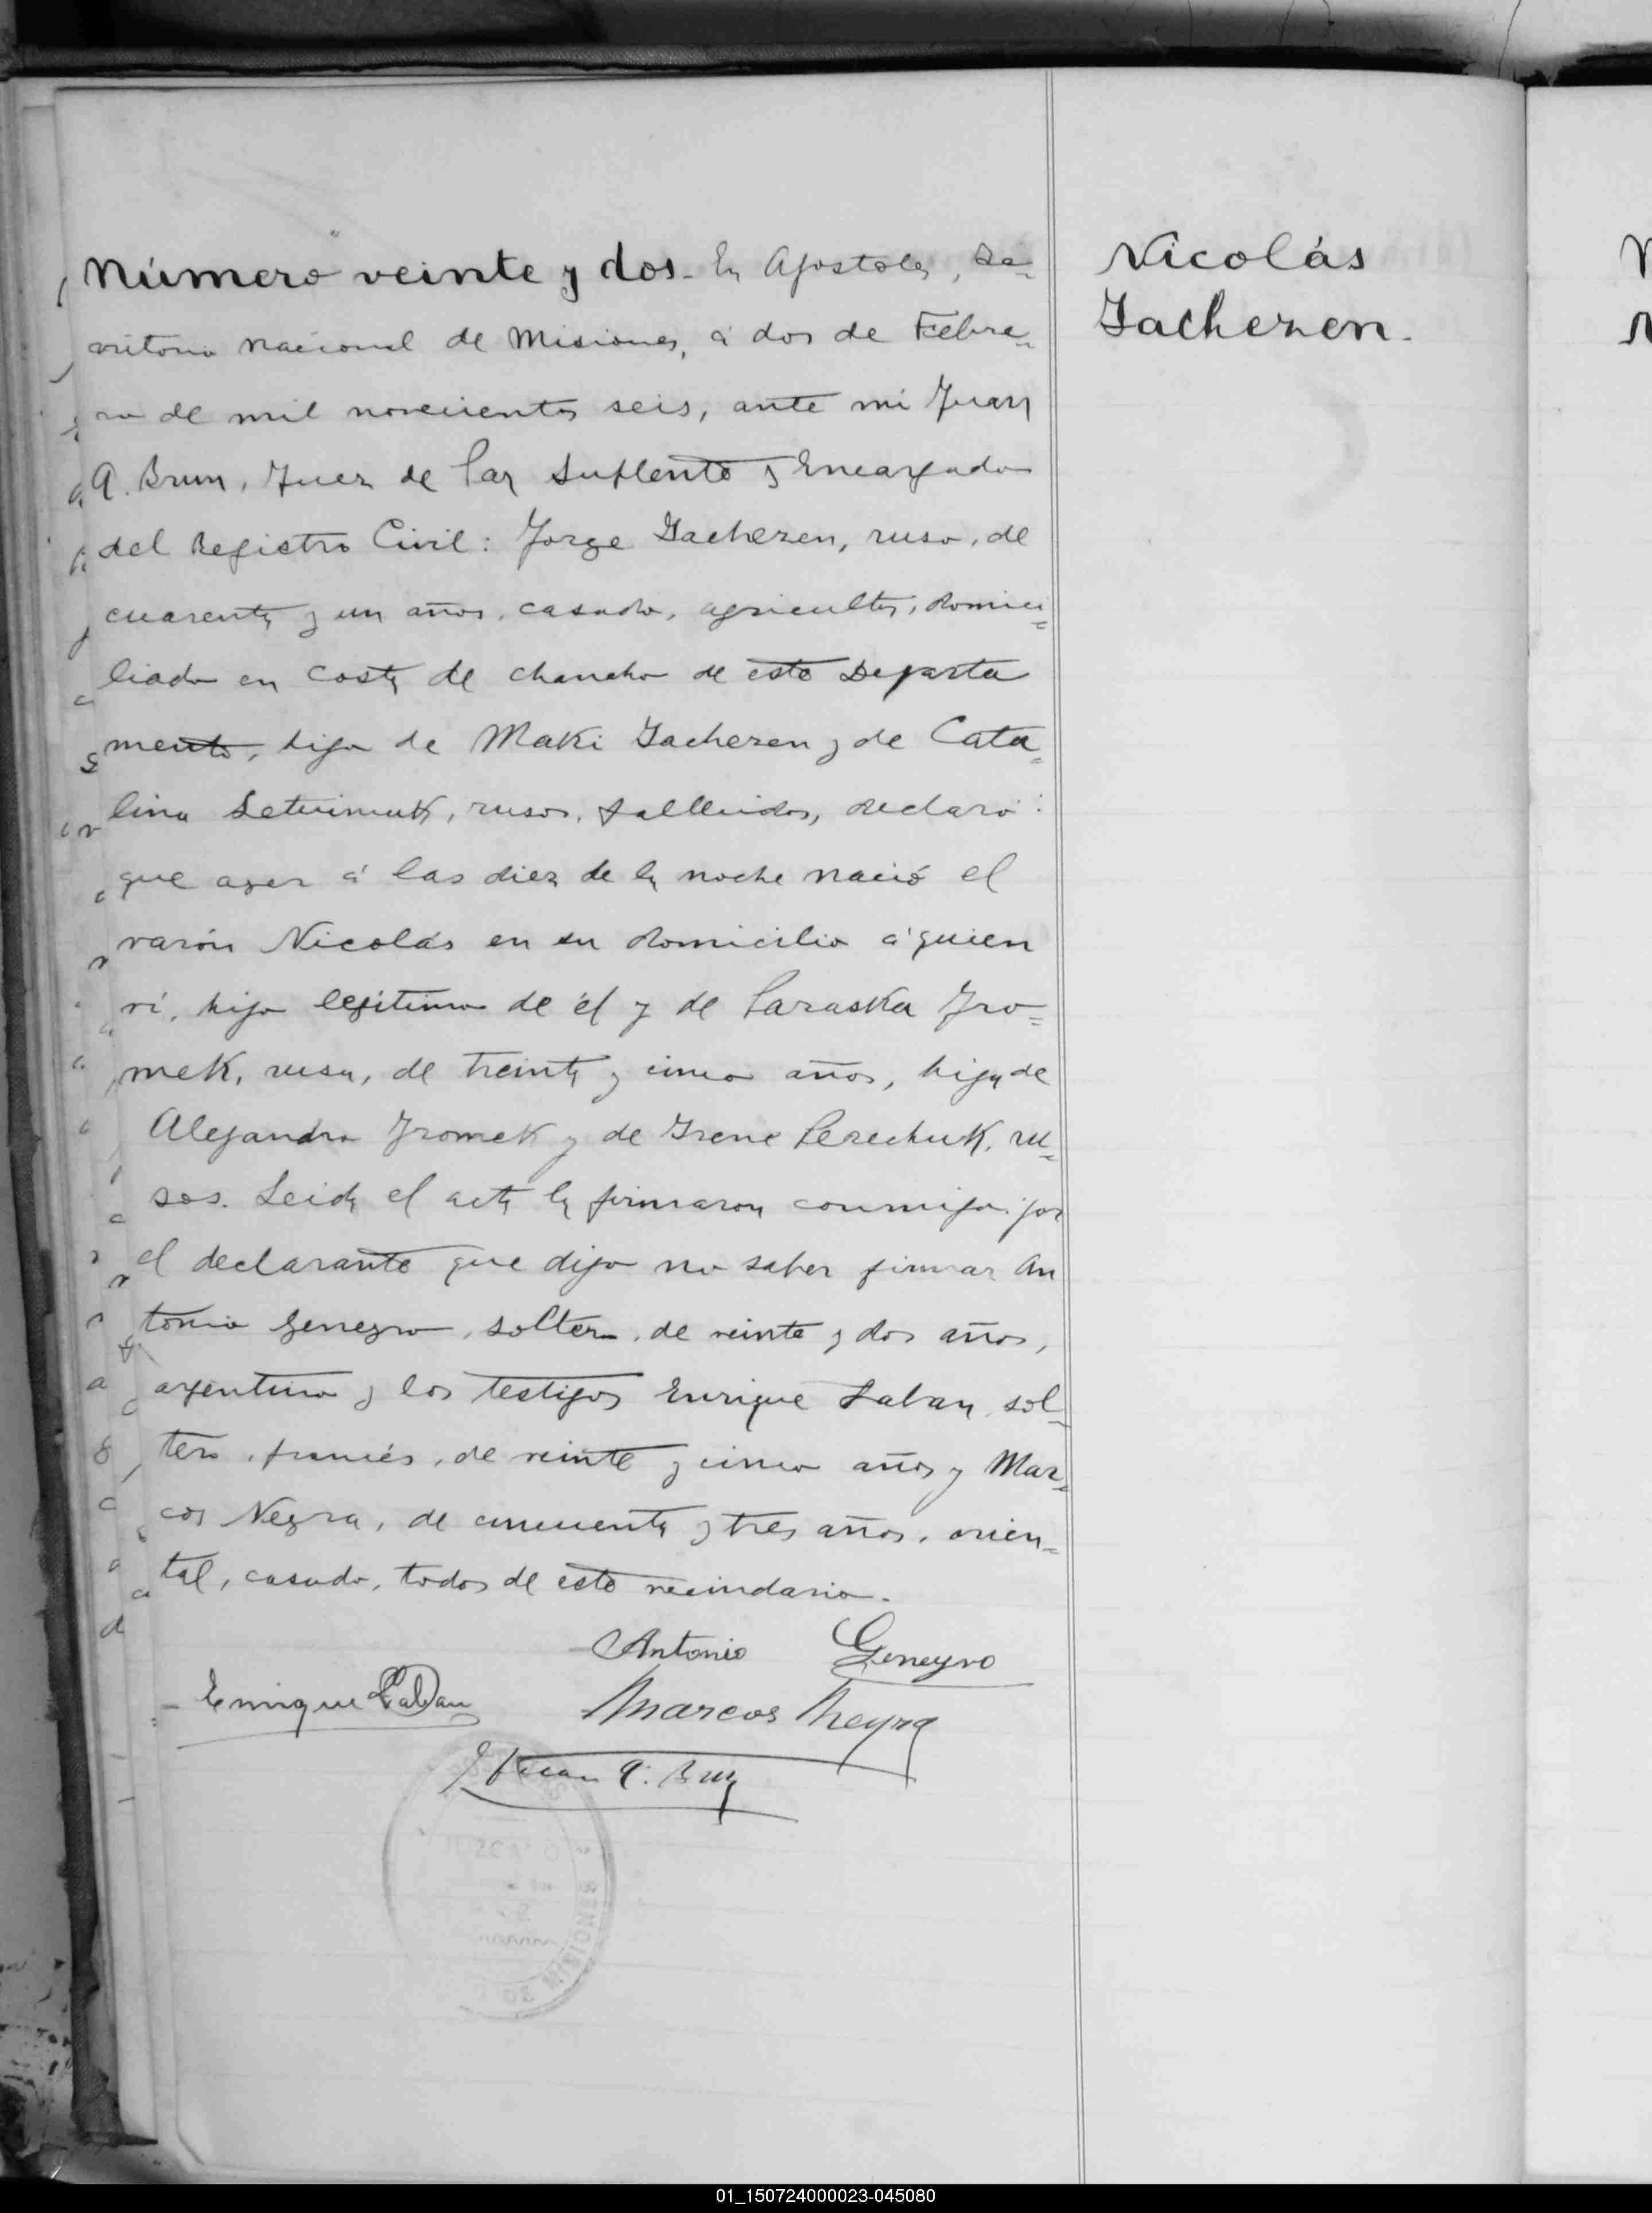 Número veinte y dos. En Apostoles, Te-
rritorio Nacional de Misiones, á dos de Febre-
ro de mil novecientos seis, ante mi Juan
A. Brun, Juez de Paz Suplente y Encargado
del Registro Civil: Jorge Gacheren, ruso, de
cuarenta y un años, casado, agricultor, domici-
liado en Costa de chancho de este Departa
mento, hijo de Maki Gacheren y de Cata-
lina, rusos, fallecidos, declaró:
que ayer á las diez de la noche nació el
varón Nicolás en su domicilio á quien
ví, hijo legitimo de él y de Paraska Jro-
mek, rusa, de treinta y cinco años, hija de
Alejandro Jromek y de Irene Perechuk, ru-
sos. Leida el acta la firmaron conmigo por
el declarante que dijo no saber firmar An
tonio Geneyro, soltero, de veinte y dos años,
argentino y los testigos Enrique Laban, sol-
tero, francés, de veinte y cinco años y Mar-
cos Neyra, de cincuenta y tres años, orien-
tal, casado, todos de este vecindario.
Antonio Geneyro
Enrique Laban
Marcos Neyra
Juan A. Brun
Nicolás
Gacheren.
01_150724000023-045080